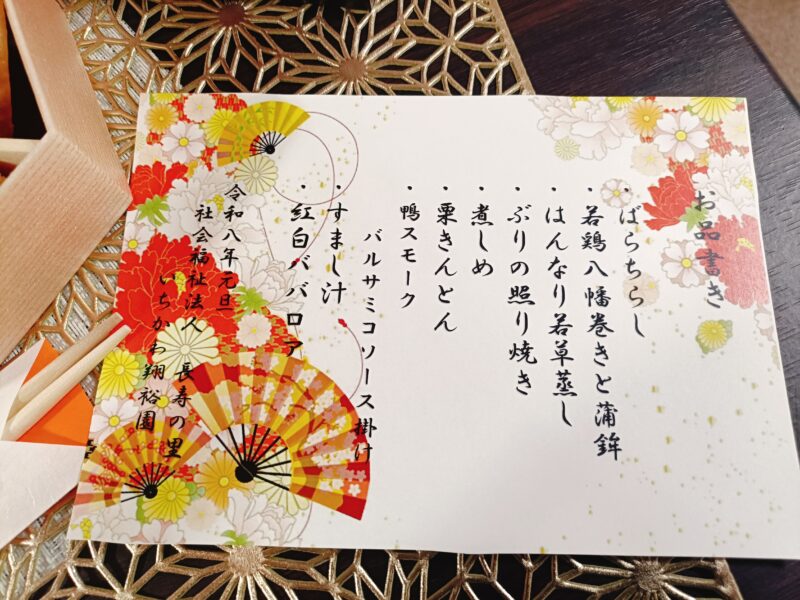 お品書き
・ばらちらし
・若鶏八幡巻きと蒲鉾
・はんなり若草蒸し
・ぶりの照り焼き
・煮しめ
・栗きんとん
・鴨スモーク
バルサミコソース掛け
・すまし汁
・紅白ババロア
令和八年元旦
社会福祉法人 長寿の里
いちかわ翔裕園